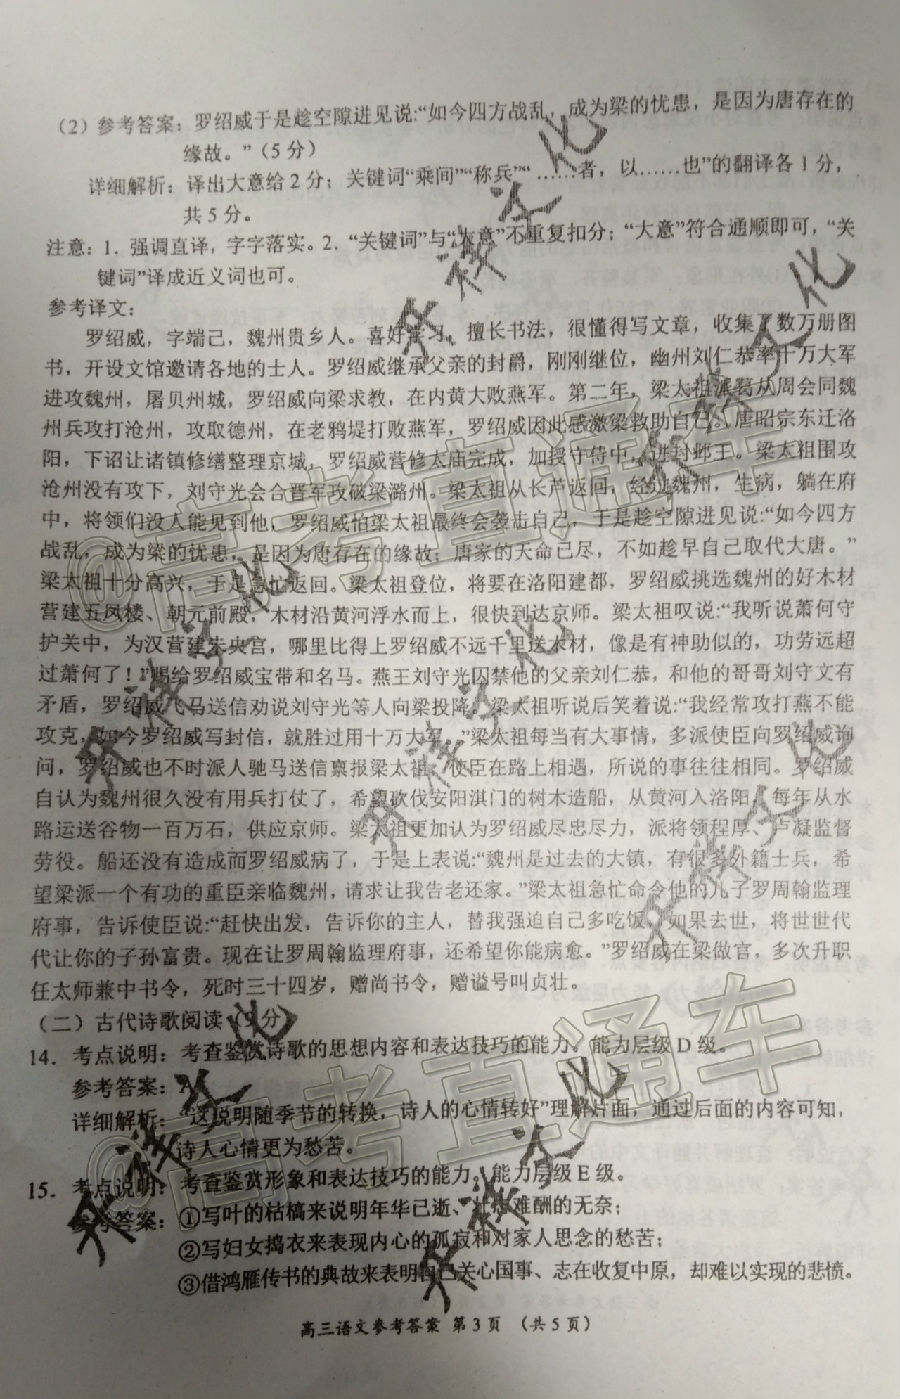 (2)参考答案：罗绍威于是趁空隙进见说：“如今四方战乱，成为梁的忧患，是因为唐存在的
缘故。”(5分)
详细解析：译出大意给2分；关键词“乘间”“称兵”“……者，以……也”的翻译各1分，
共5分。
注意：1．强调直译，字字落实。2．“关键词”与“大意”不重复扣分；“大意”符合通顺即可，“关
键词”译成近义词也可。
参考译文：
罗绍威，字端己，魏州贵乡人。喜好学习，擅长书法，很懂得写文章，收集了数万册图
书，开设文馆邀请各地的士人。罗绍威继承父亲的封爵，刚刚继位，幽州刘仁恭率十万大军
进攻魏州，屠贝州城，罗绍威向梁求救，在内黄大败燕军。第二年，梁太祖派葛从周会同魏
州兵攻打沧州，攻取德州，在老鸦堤打败燕军，罗绍威因此感激梁救助自己。唐昭宗东迁洛
阳，下诏让诸镇修缮整理京城，罗绍威营修太庙完成，加授守侍中，进封邺王。梁太祖围攻
沧州没有攻下，刘守光会合晋军攻破梁潞州。梁太祖从长芦返回，经过魏州，生病，躺在府
中，将领们没人能见到他，罗绍威怕梁太祖最终会袭击自己，于是趁空隙进见说：“如今四方
战乱，成为梁的忧患，是因为唐存在的缘故；唐家的天命已尽，不如趁早自己取代大唐。”
梁太祖十分高兴，于是急忙返回。梁太祖登位，将要在洛阳建都，罗绍威挑选魏州的好木材
营建五凤楼、朝元前殿，木材沿黄河浮水而上，很快到达京师。梁太祖叹说：“我听说萧何守
护关中，为汉营建未央宫，哪里比得上罗绍威不远千里送木材，像是有神助似的，功劳远超
过萧何了！”赐给罗绍威宝带和名马。燕王刘守光囚禁他的父亲刘仁恭，和他的哥哥刘守文有
矛盾，罗绍威飞马送信劝说刘守光等人向梁投降。梁太祖听说后笑着说：“我经常攻打燕不能
攻克，如今罗绍威写封信，就胜过用十万大军。”梁太祖每当有大事情，多派使臣向罗绍威询
问，罗绍威也不时派人驰马送信禀报梁太祖，使臣在路上相遇，所说的事往往相同。罗绍威
自认为魏州很久没有用兵打仗了，希望砍伐安阳淇门的树木造船，从黄河入洛阳，每年从水
路运送谷物一百万石，供应京师。梁太祖更加认为罗绍威尽忠尽力，派将领程厚、卢凝监督
劳役。船还没有造成而罗绍威病了，于是上表说：“魏州是过去的大镇，有很多外籍士兵，希
望梁派一个有功的重臣亲临魏州，请求让我告老还家。”梁太祖急忙命令他的儿子罗周翰监理
府事，告诉使臣说：“赶快出发，告诉你的主人，替我强迫自己多吃饭。如果去世，将世世代
代让你的子孙富贵。现在让罗周翰监理府事，还希望你能病愈。”罗绍威在梁做官，多次升职
任太师兼中书令，死时三十四岁，赠尚书令，赠谥号叫贞壮。
(二)古代诗歌阅读(9分)
14．考点说明：考查鉴赏诗歌的思想内容和表达技巧的能力。能力层级D级。
参考答案：A
详细解析：“这说明随季节的转换，诗人的心情转好”理解片面，通过后面的内容可知，
诗人心情更为愁苦。
15．考点说明：考查鉴赏形象和表达技巧的能力，能力层级E级。
参考答案：①写叶的枯槁来说明年华已逝、壮志难酬的无奈；
②写妇女捣衣来表现内心的孤寂和对家人思念的愁苦；
③借鸿雁传书的典故来表明自己关心国事、志在收复中原，却难以实现的悲愤。
高三语文参考答案 第3页 (共5页)
@高考直通车
@高考直通车